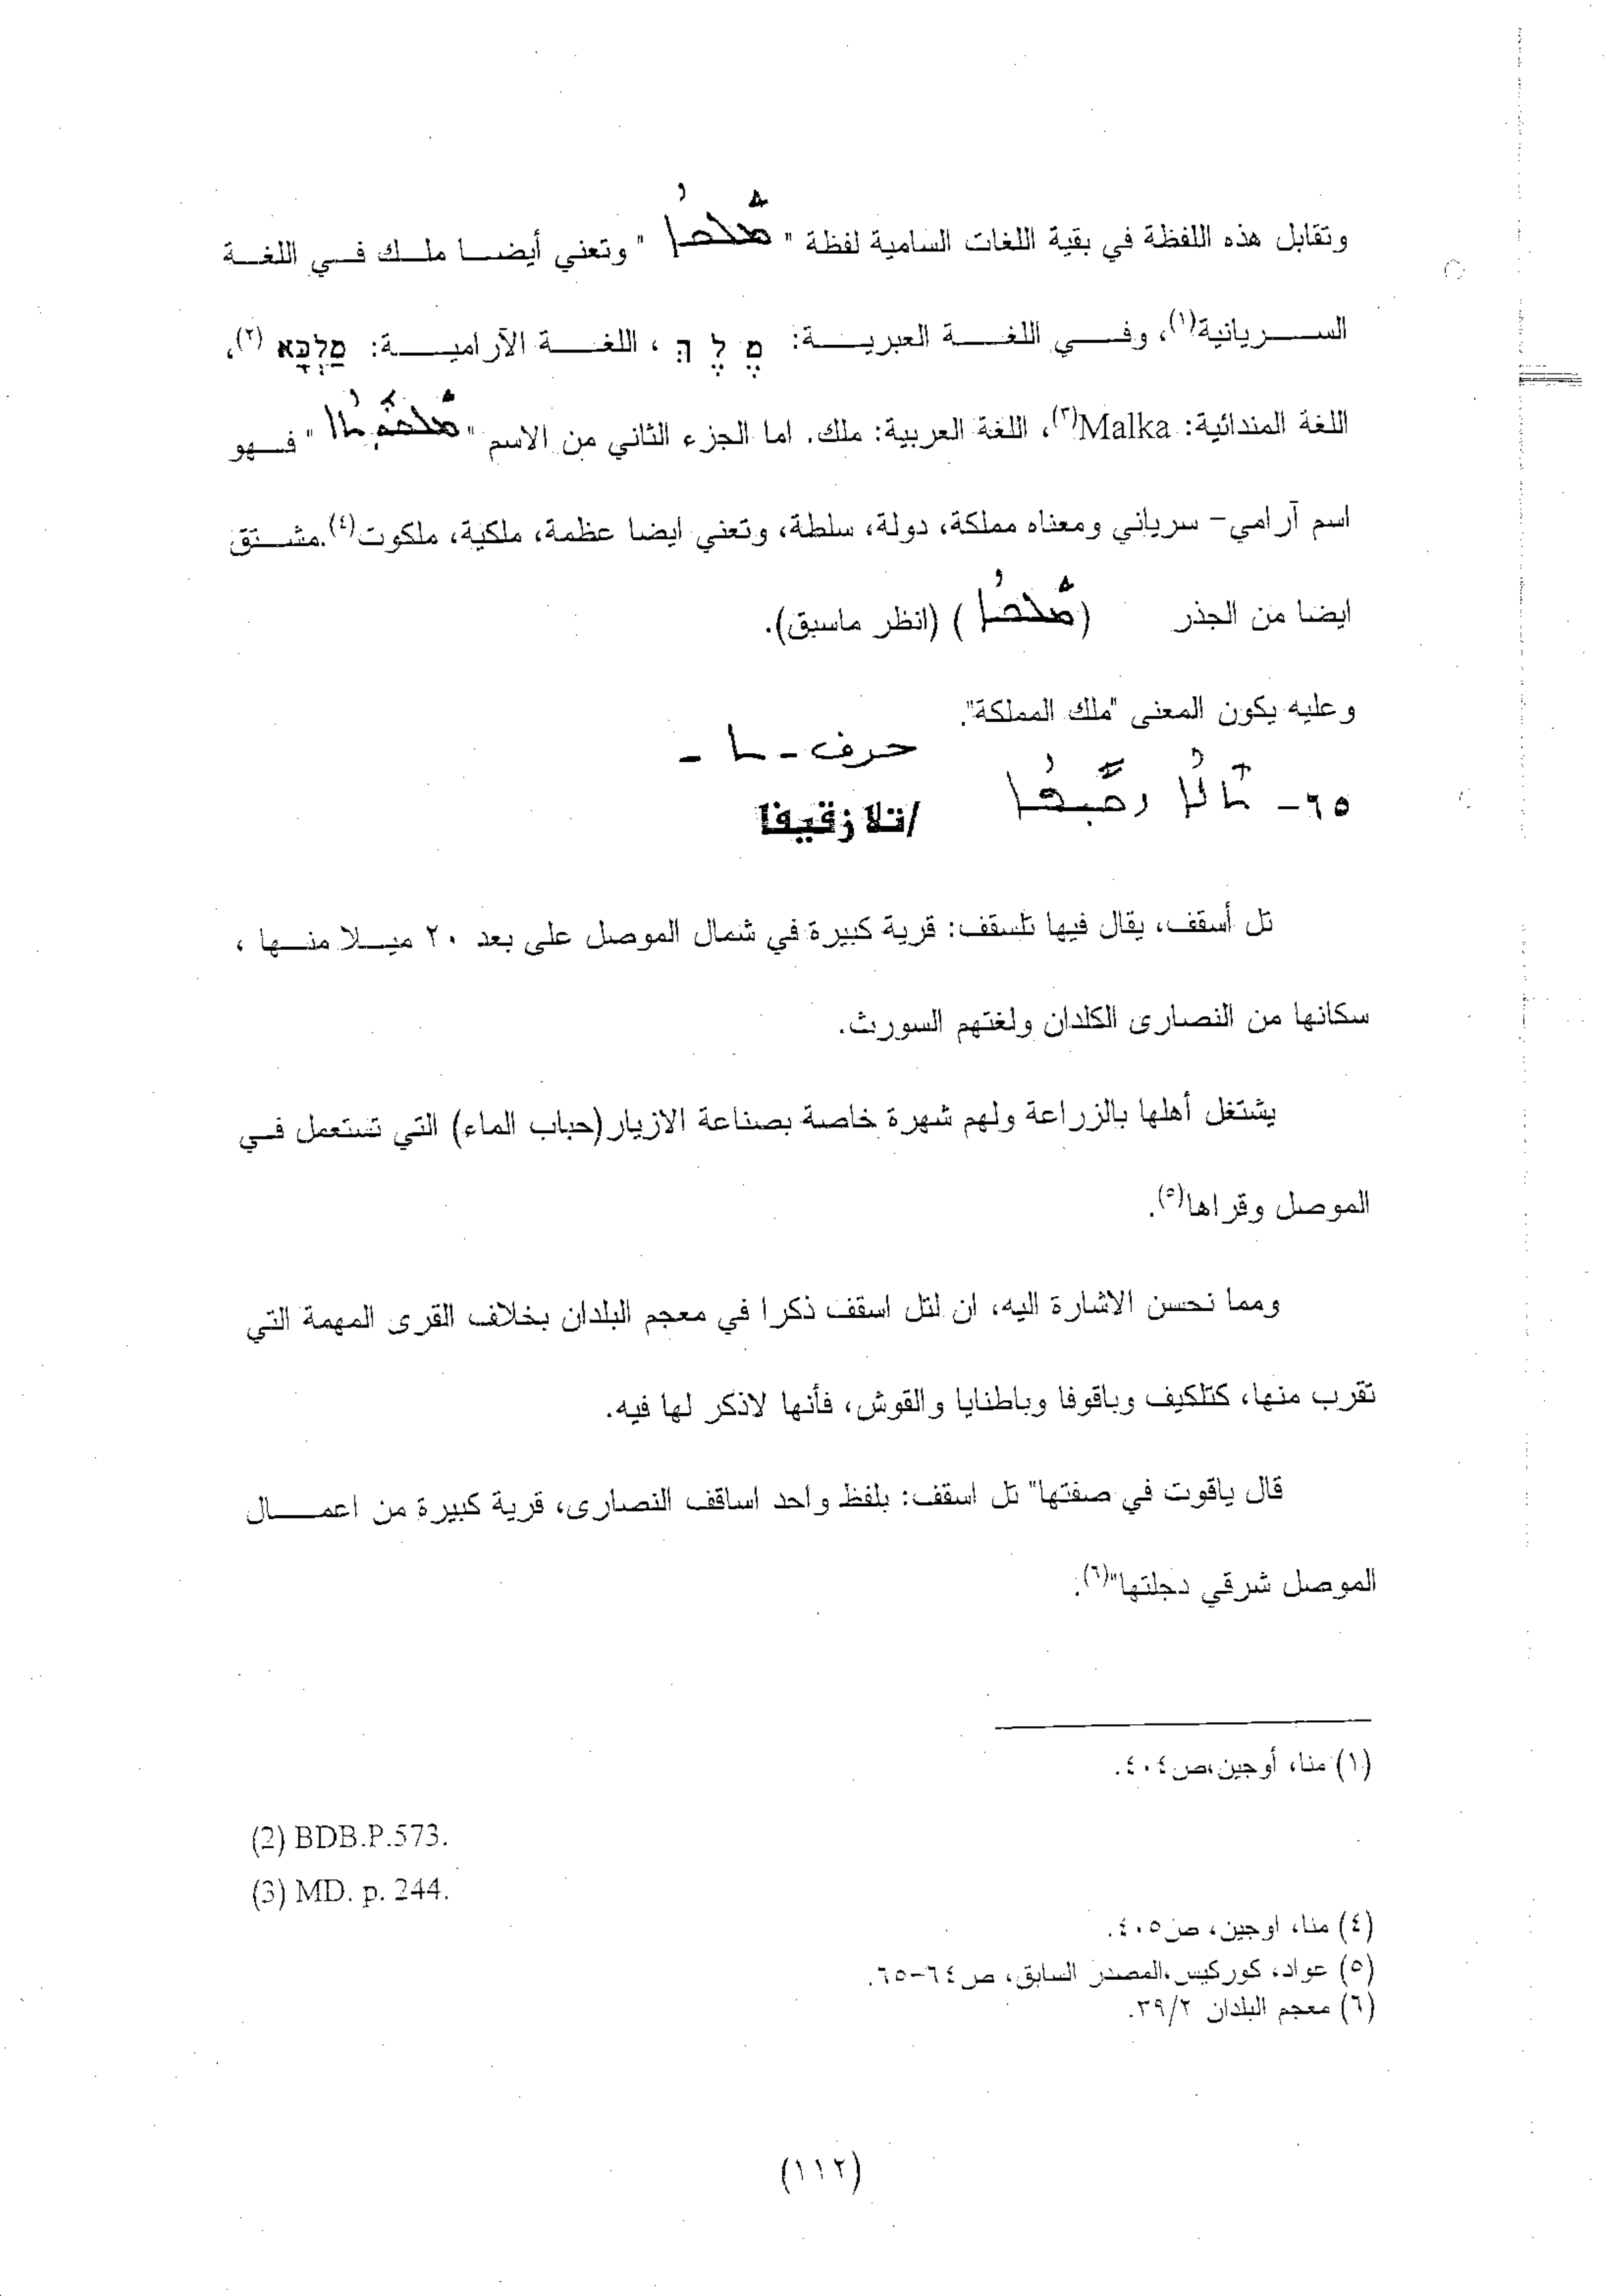 وتقابل هذه اللفظة في بقية اللغات السامية لفظة " ܡܰܠܟܳܐ " وتعني أيضا ملك في اللغة
السريانية(١)، وفي اللغة العبرية: מֶ לֶ ךְ ، اللغة الآرامية: מַלְכָּא (٢)،
اللغة المندائية: Malka(٣)، اللغة العربية: ملك. اما الجزء الثاني من الاسم " " فهو
اسم آرامي- سرياني ومعناه مملكة، دولة، سلطة، وتعني ايضا عظمة، ملكية، ملكوت(٤).مشتق
ايضا من الجذر (ܡܰܠܟܳܐ) (انظر ماسبق).
وعليه يكون المعنى "ملك المملكة".
حرف - ܬ -
٦٥- ܬܰܠܳܐ ܙܩܺܝܦܳܐ /تلا زقيفا
تل أسقف، يقال فيها تلسقف: قرية كبيرة في شمال الموصل على بعد ٢٠ ميلا منها ،
سكانها من النصارى الكلدان ولغتهم السورث.
يشتغل أهلها بالزراعة ولهم شهرة خاصة بصناعة الازيار(حباب الماء) التي تستعمل في
الموصل وقراها(٥).
ومما نحسن الاشارة اليه، ان لتل اسقف ذكرا في معجم البلدان بخلاف القرى المهمة التي
تقرب منها، كتلكيف وباقوفا وباطنايا والقوش، فأنها لاذكر لها فيه.
قال ياقوت في صفتها" تل اسقف: بلفظ واحد اساقف النصارى، قرية كبيرة من اعمال
الموصل شرقي دجلتها"(٦).
(١) منا، أوجين،ص٤٠٤.
(2) BDB.P.573.
(3) MD. p. 244.
(٤) منا، اوجين، ص٤٠٥.
(٥) عواد، كوركيس،المصدر السابق، ص٦٤-٦٥.
(٦) معجم البلدان ٣٩/٢.
(١١٢)